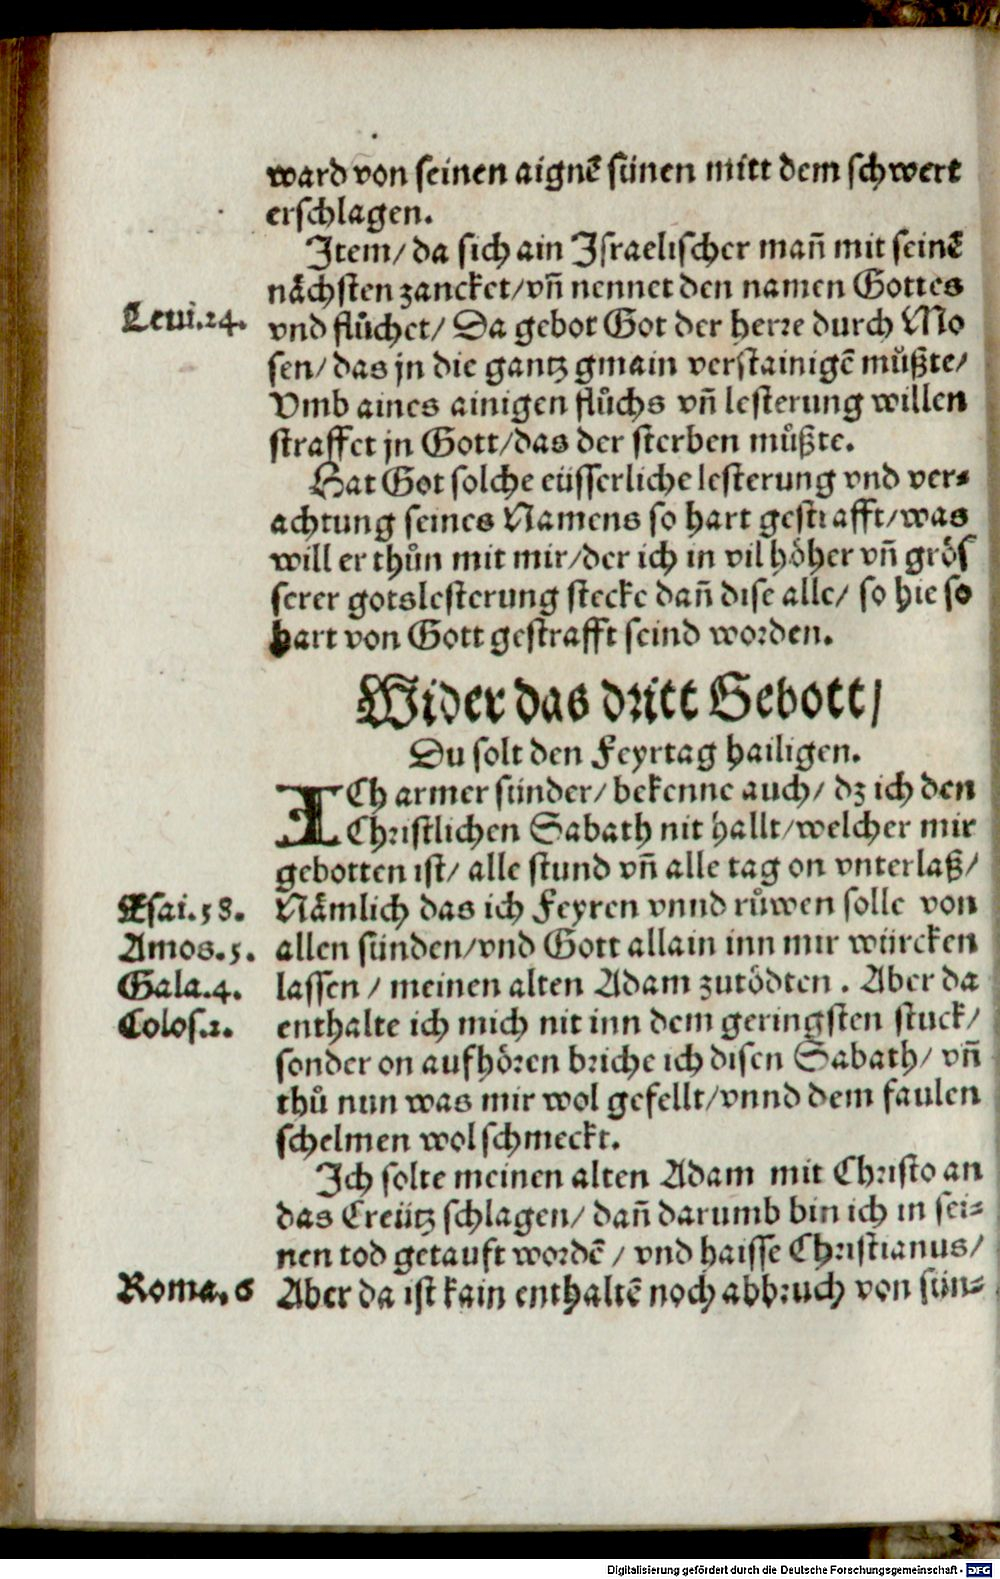 ward von seinen aignē sünen mitt dem schwert
erschlagen.
Item/ da sich ain Israelischer mañ mit seinē
nächsten zancket/ vñ nennet den namen Gottes
Leui.24.
vnd flůchet/ Da gebot Got der herre durch Mo
sen/ das jn die gantz gmain verstainigē můßte/
Vmb aines ainigen flůchs vñ lesterung willen
straffet jn Gott/ das der sterben můßte.
Hat Got solche eüsserliche lesterung vnd ver-
achtung seines Namens so hart gestrafft/ was
will er thůn mit mir/ der ich in vil höher vñ grös
serer gotslesterung stecke dañ dise alle/ so hie so
hart von Gott gestrafft seind worden.
Wider das dritt Gebott/
Du solt den Feyrtag hailigen.
ICh armer sünder/ bekenne auch/ dz ich den
Christlichen Sabath nit hallt/ welcher mir
gebotten ist/ alle stund vñ alle tag on vnterlaß/
Esai.58.
Nämlich das ich Feyren vnnd růwen solle von
Amos.5.
allen sünden/ vnd Gott allain inn mir würcken
Gala.4.
lassen / meinen alten Adam zutödten . Aber da
Colos.2.
enthalte ich mich nit inn dem geringsten stuck/
sonder on aufhören briche ich disen Sabath/ vñ
thů nun was mir wol gefellt/ vnnd dem faulen
schelmen wol schmeckt.
Ich solte meinen alten Adam mit Christo an
das Creütz schlagen/ dañ darumb bin ich in sei-
nen tod getauft wordē / vnd haisse Christianus/
Roma. 6
Aber da ist kain enthaltē noch abbruch von sün-
Digitalisierung gefördert durch die Deutsche Forschungsgemeinschaft - DFG